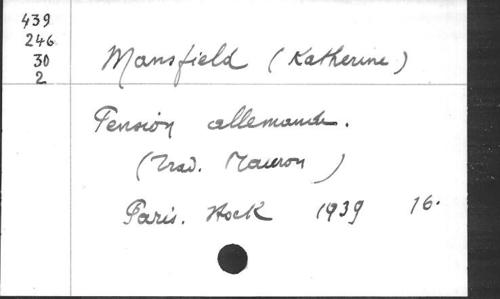 439
246
30
2
Mansfield (Katherine)
Pension allemande.
(Trad. Mauron)
Paris. Stock 1939 16.